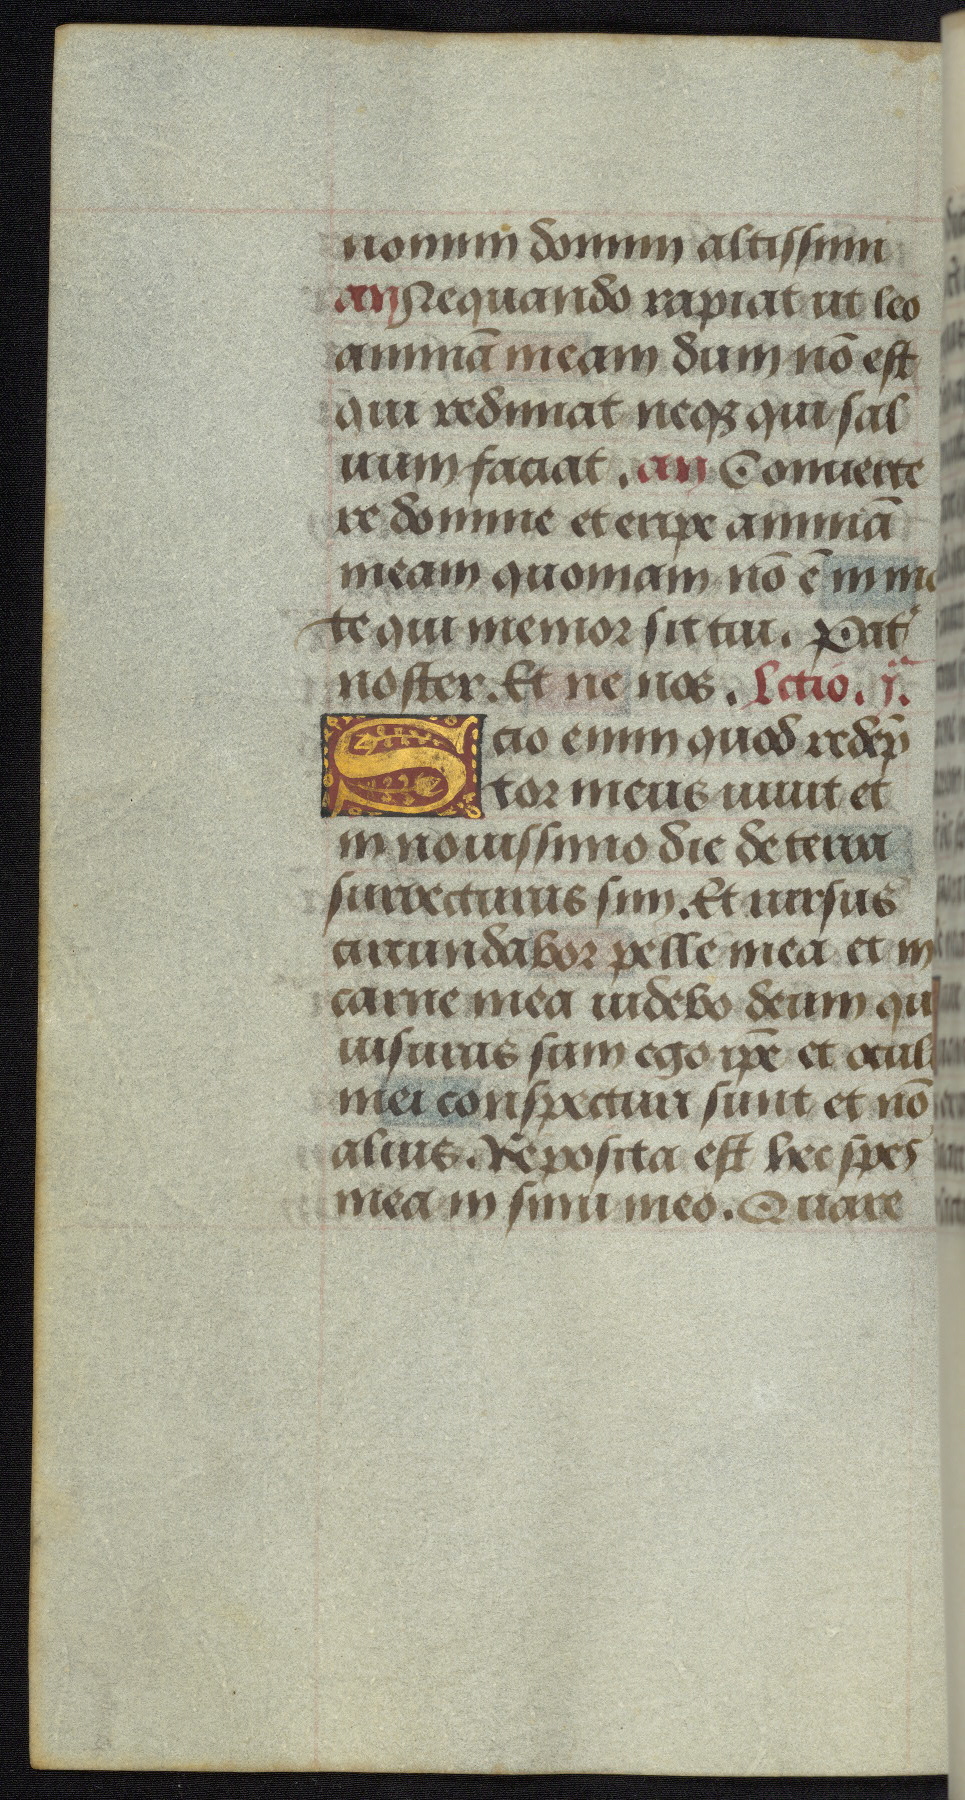 nomini domini altissimi
an Nequando rapiat ut leo
animā meam dum nō est
qui redimat neqꝫ qui sal
uum faciat. an Conuerte
re domine et eripe animā
meam quoniam nō ē in mo
te qui memor sit tui. Pat
noster. Et ne nos. Lctio. j.ᵃ
Scio enim quod redēp
tor meus uiuit et
in nouissimo die de terra
surrecturus sim. Et rursus
circundabor pelle mea et in
carne mea uidebo deum qu
uisurus sum ego ip̄e et ocul
mei conspecturi sunt et nō
alius. Reposita est hec spes
mea in sinu meo. Quare